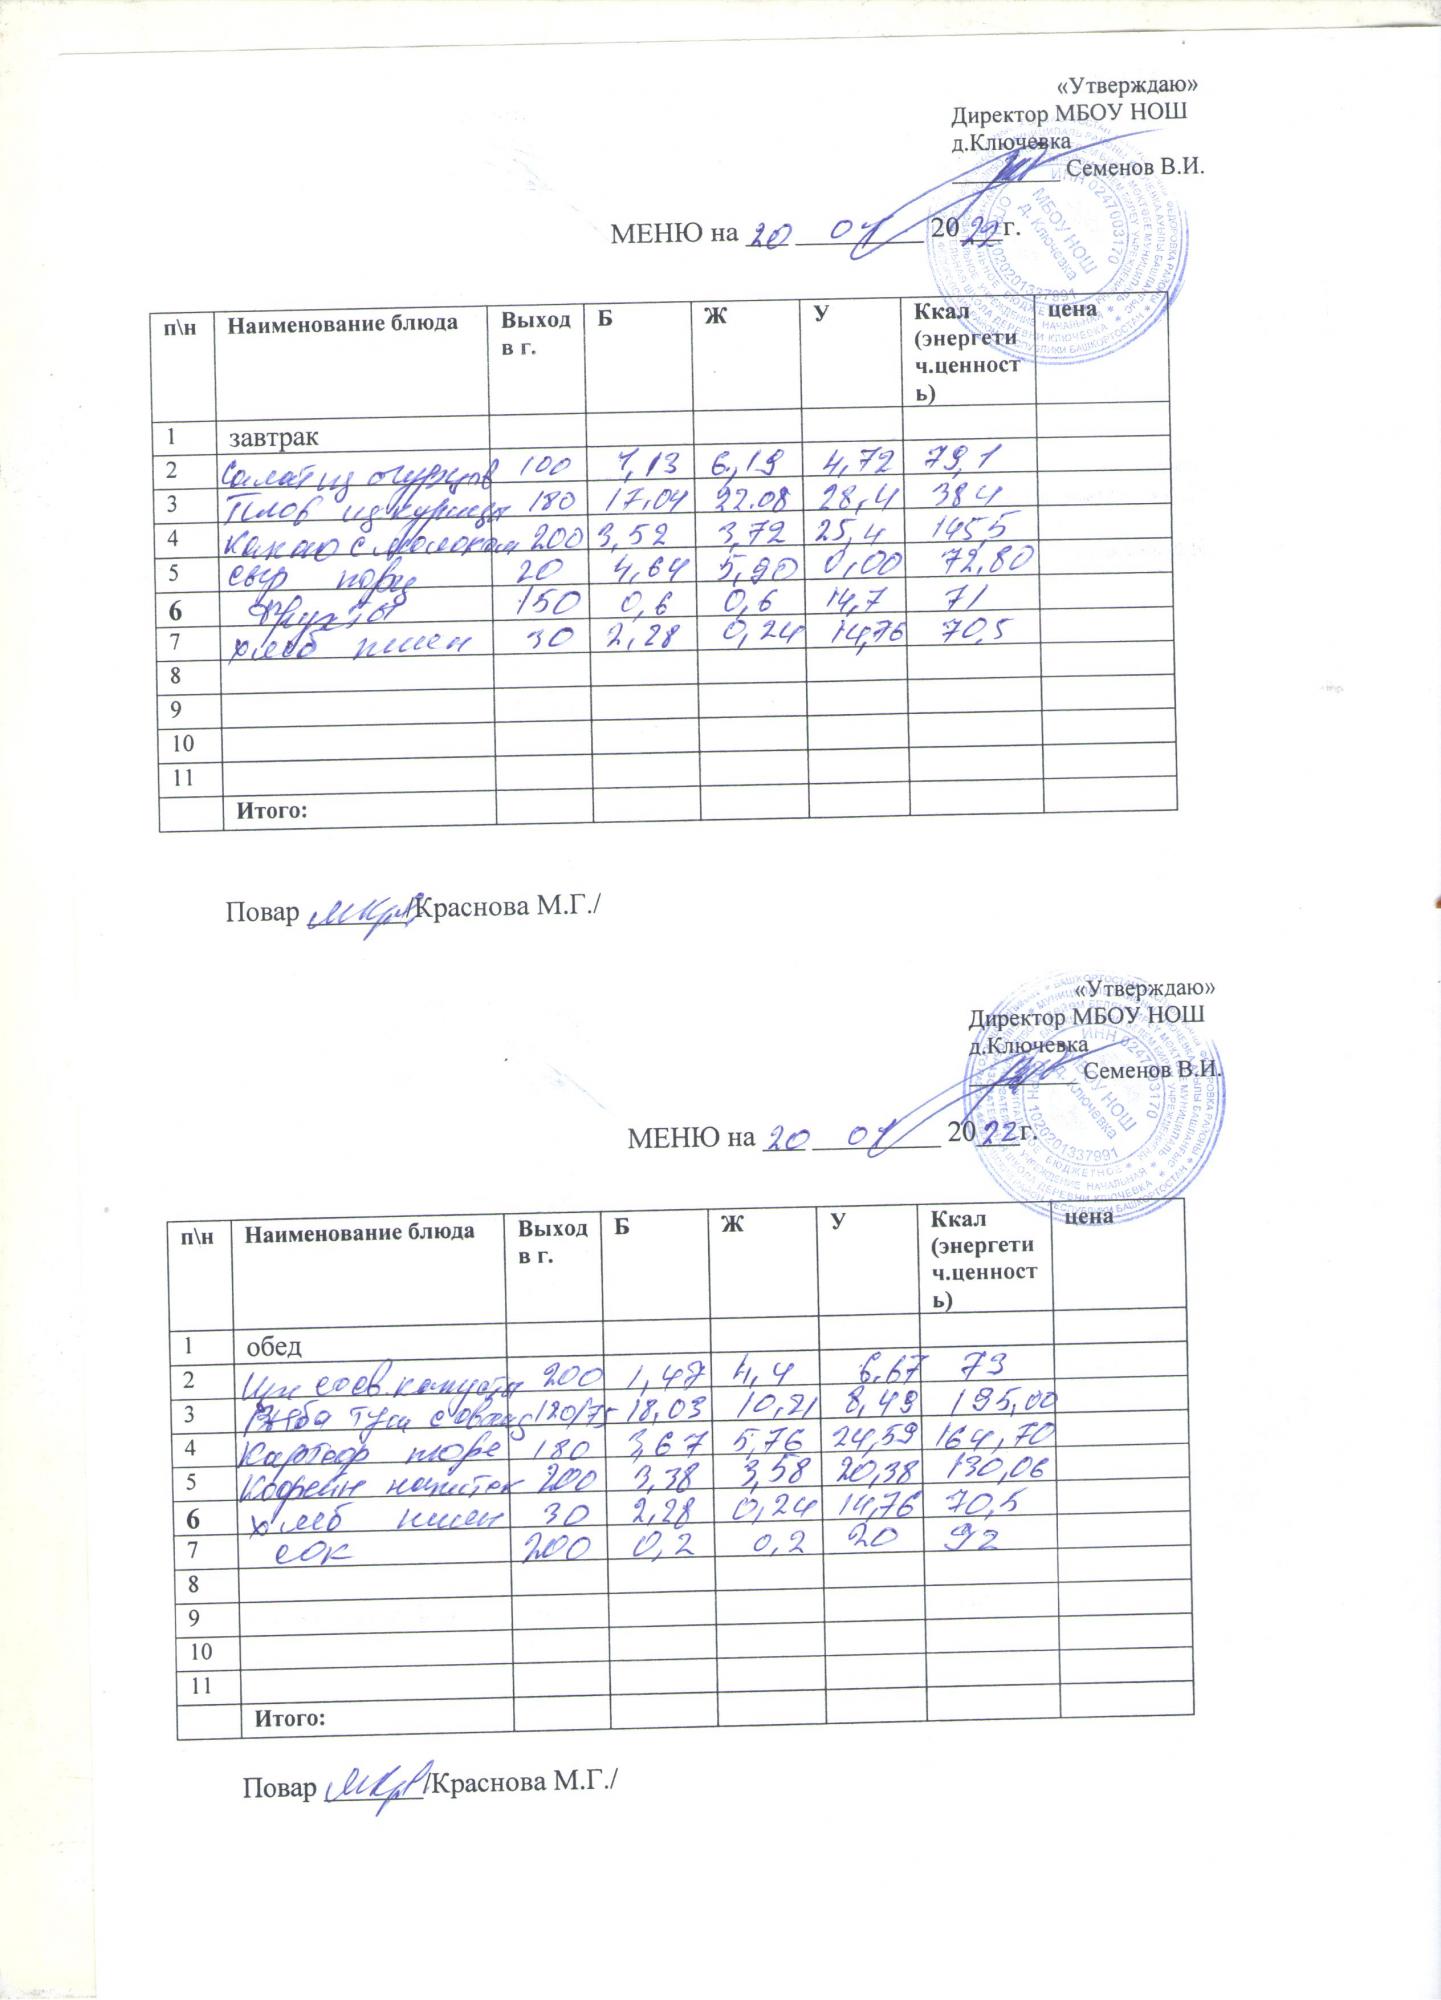 «Утверждаю»
Директор МБОУ НОШ
д.Ключевка
Семенов В.И.
МЕНЮ на 20 04 2022г.
п\н Наименование блюда Выход в г. Б Ж У Ккал (энергетич.ценность) цена
1 завтрак
2 Салат из огурцов 100 1,13 6,19 4,72 79,1
3 Плов из курицы 180 17.04 22.08 28,4 384
4 Какао с молоком 200 3,52 3,72 25,4 145,5
5 сыр порц 20 4,64 5,90 0,00 72,80
6 фрукты 150 0,6 0,6 14,7 71
7 хлеб пшен 30 2,28 0,24 14,76 70,5
8
9
10
11
Итого:
Повар /Краснова М.Г./
«Утверждаю»
Директор МБОУ НОШ
д.Ключевка
Семенов В.И.
МЕНЮ на 20 04 2022г.
п\н Наименование блюда Выход в г. Б Ж У Ккал (энергетич.ценность) цена
1 обед
2 Щи со св.капусты 200 1,47 4,4 6,67 73
3 Рыба туш с овощ 120/75 18,03 10,21 8,49 195,00
4 Картоф пюре 180 3,67 5,76 24,59 164,70
5 Кофейн напиток 200 3,38 3,58 20,38 130,06
6 хлеб пшен 30 2,28 0,24 14,76 70,5
7 сок 200 0,2 0,2 20 92
8
9
10
11
Итого:
Повар /Краснова М.Г./
ИНН 0247003170
МБОУ НОШ
д. Ключевка
1020201337991